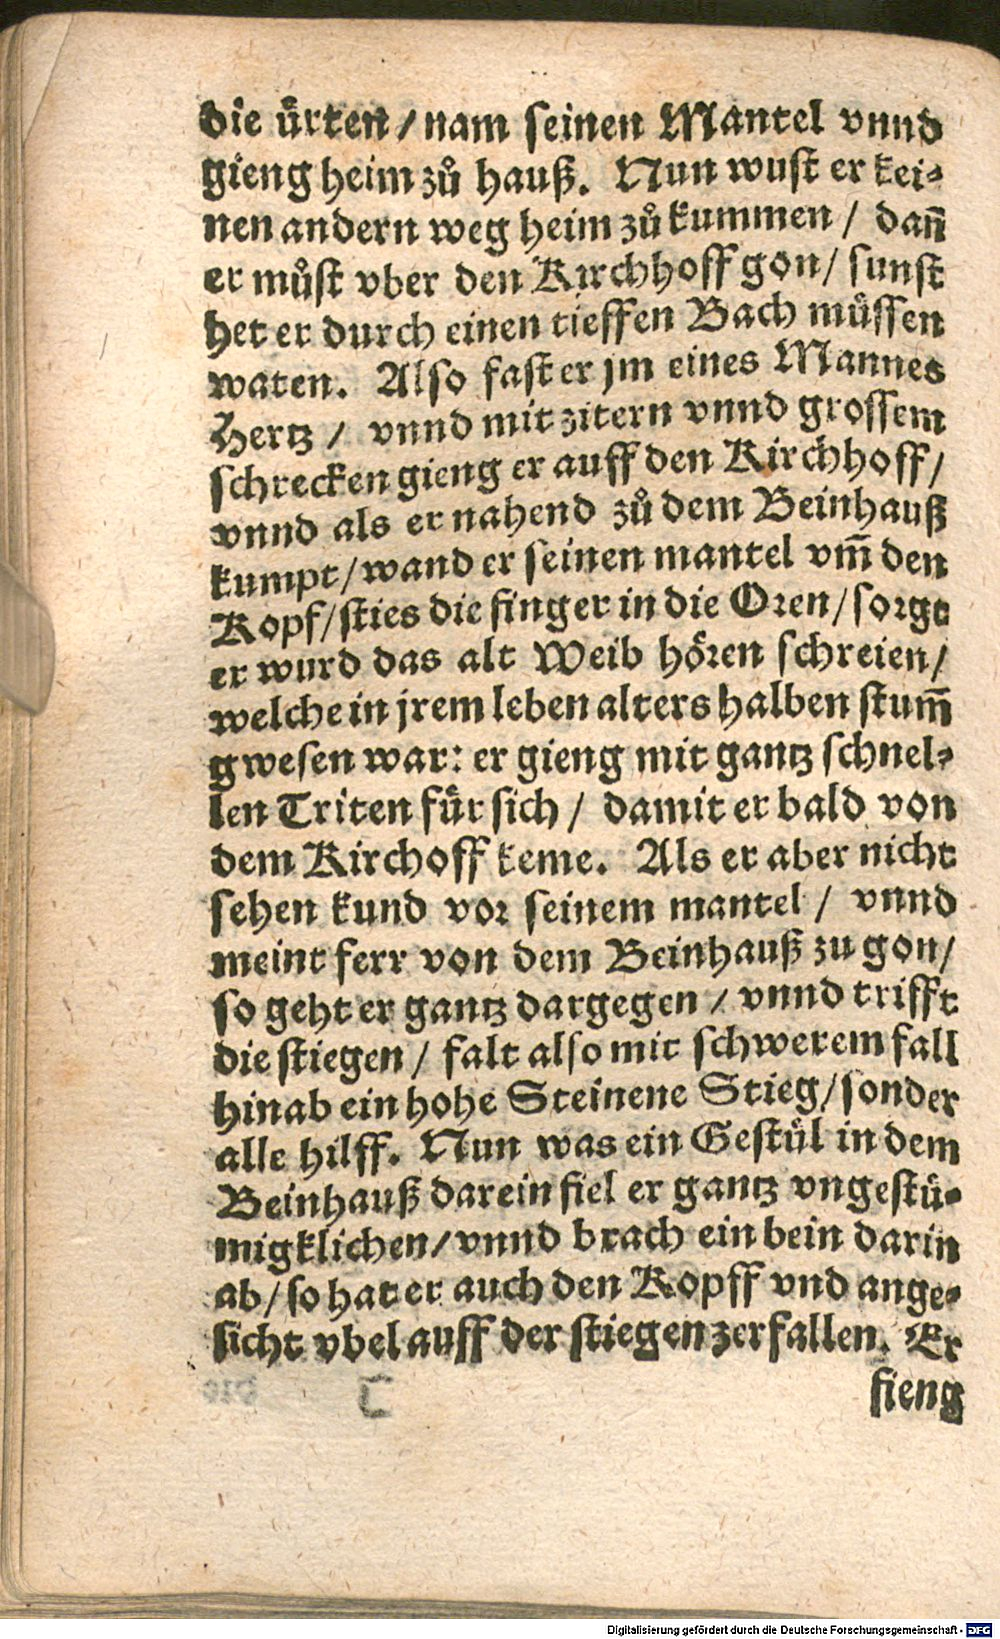 die uͤrten / nam seinen Mantel vnnd
gieng heim zuͦ hauß. Nun wust er kei⸗
nen andern weg heim zuͦ kummen / dañ
er muͤst vber den Kirchhoff gon / sunst
het er durch einen tieffen Bach muͤssen
waten. Also fast er jm eines Mannes
Hertz / vnnd mit zitern vnnd grossem
schrecken gieng er auff den Kirchhoff /
vnnd als er nahend zuͦ dem Beinhauß
kumpt / wand er seinen mantel vm̃ den
Kopf / sties die finger in die Oren / sorgt
er wurd das alt Weib hoͤren schreien /
welche in jrem leben alters halben stum̃
gwesen war: er gieng mit gantz schnel⸗
len Triten fuͤr sich / damit er bald von
dem Kirchoff keme. Als er aber nicht
sehen kund vor seinem mantel / vnnd
meint ferr von dem Beinhauß zu gon /
so geht er gantz dargegen / vnnd trifft
die stiegen / falt also mit schwerem fall
hinab ein hohe Steinene Stieg / sonder
alle hilff. Nun was ein Gestuͤl in dem
Beinhauß darein fiel er gantz vngestuͤ⸗
migklichen / vnnd brach ein bein darin
ab / so hat er auch den Kopff vnd ange⸗
sicht vbel auff der stiegen zerfallen. Er
fieng
Digitalisierung gefördert durch die Deutsche Forschungsgemeinschaft - DFG